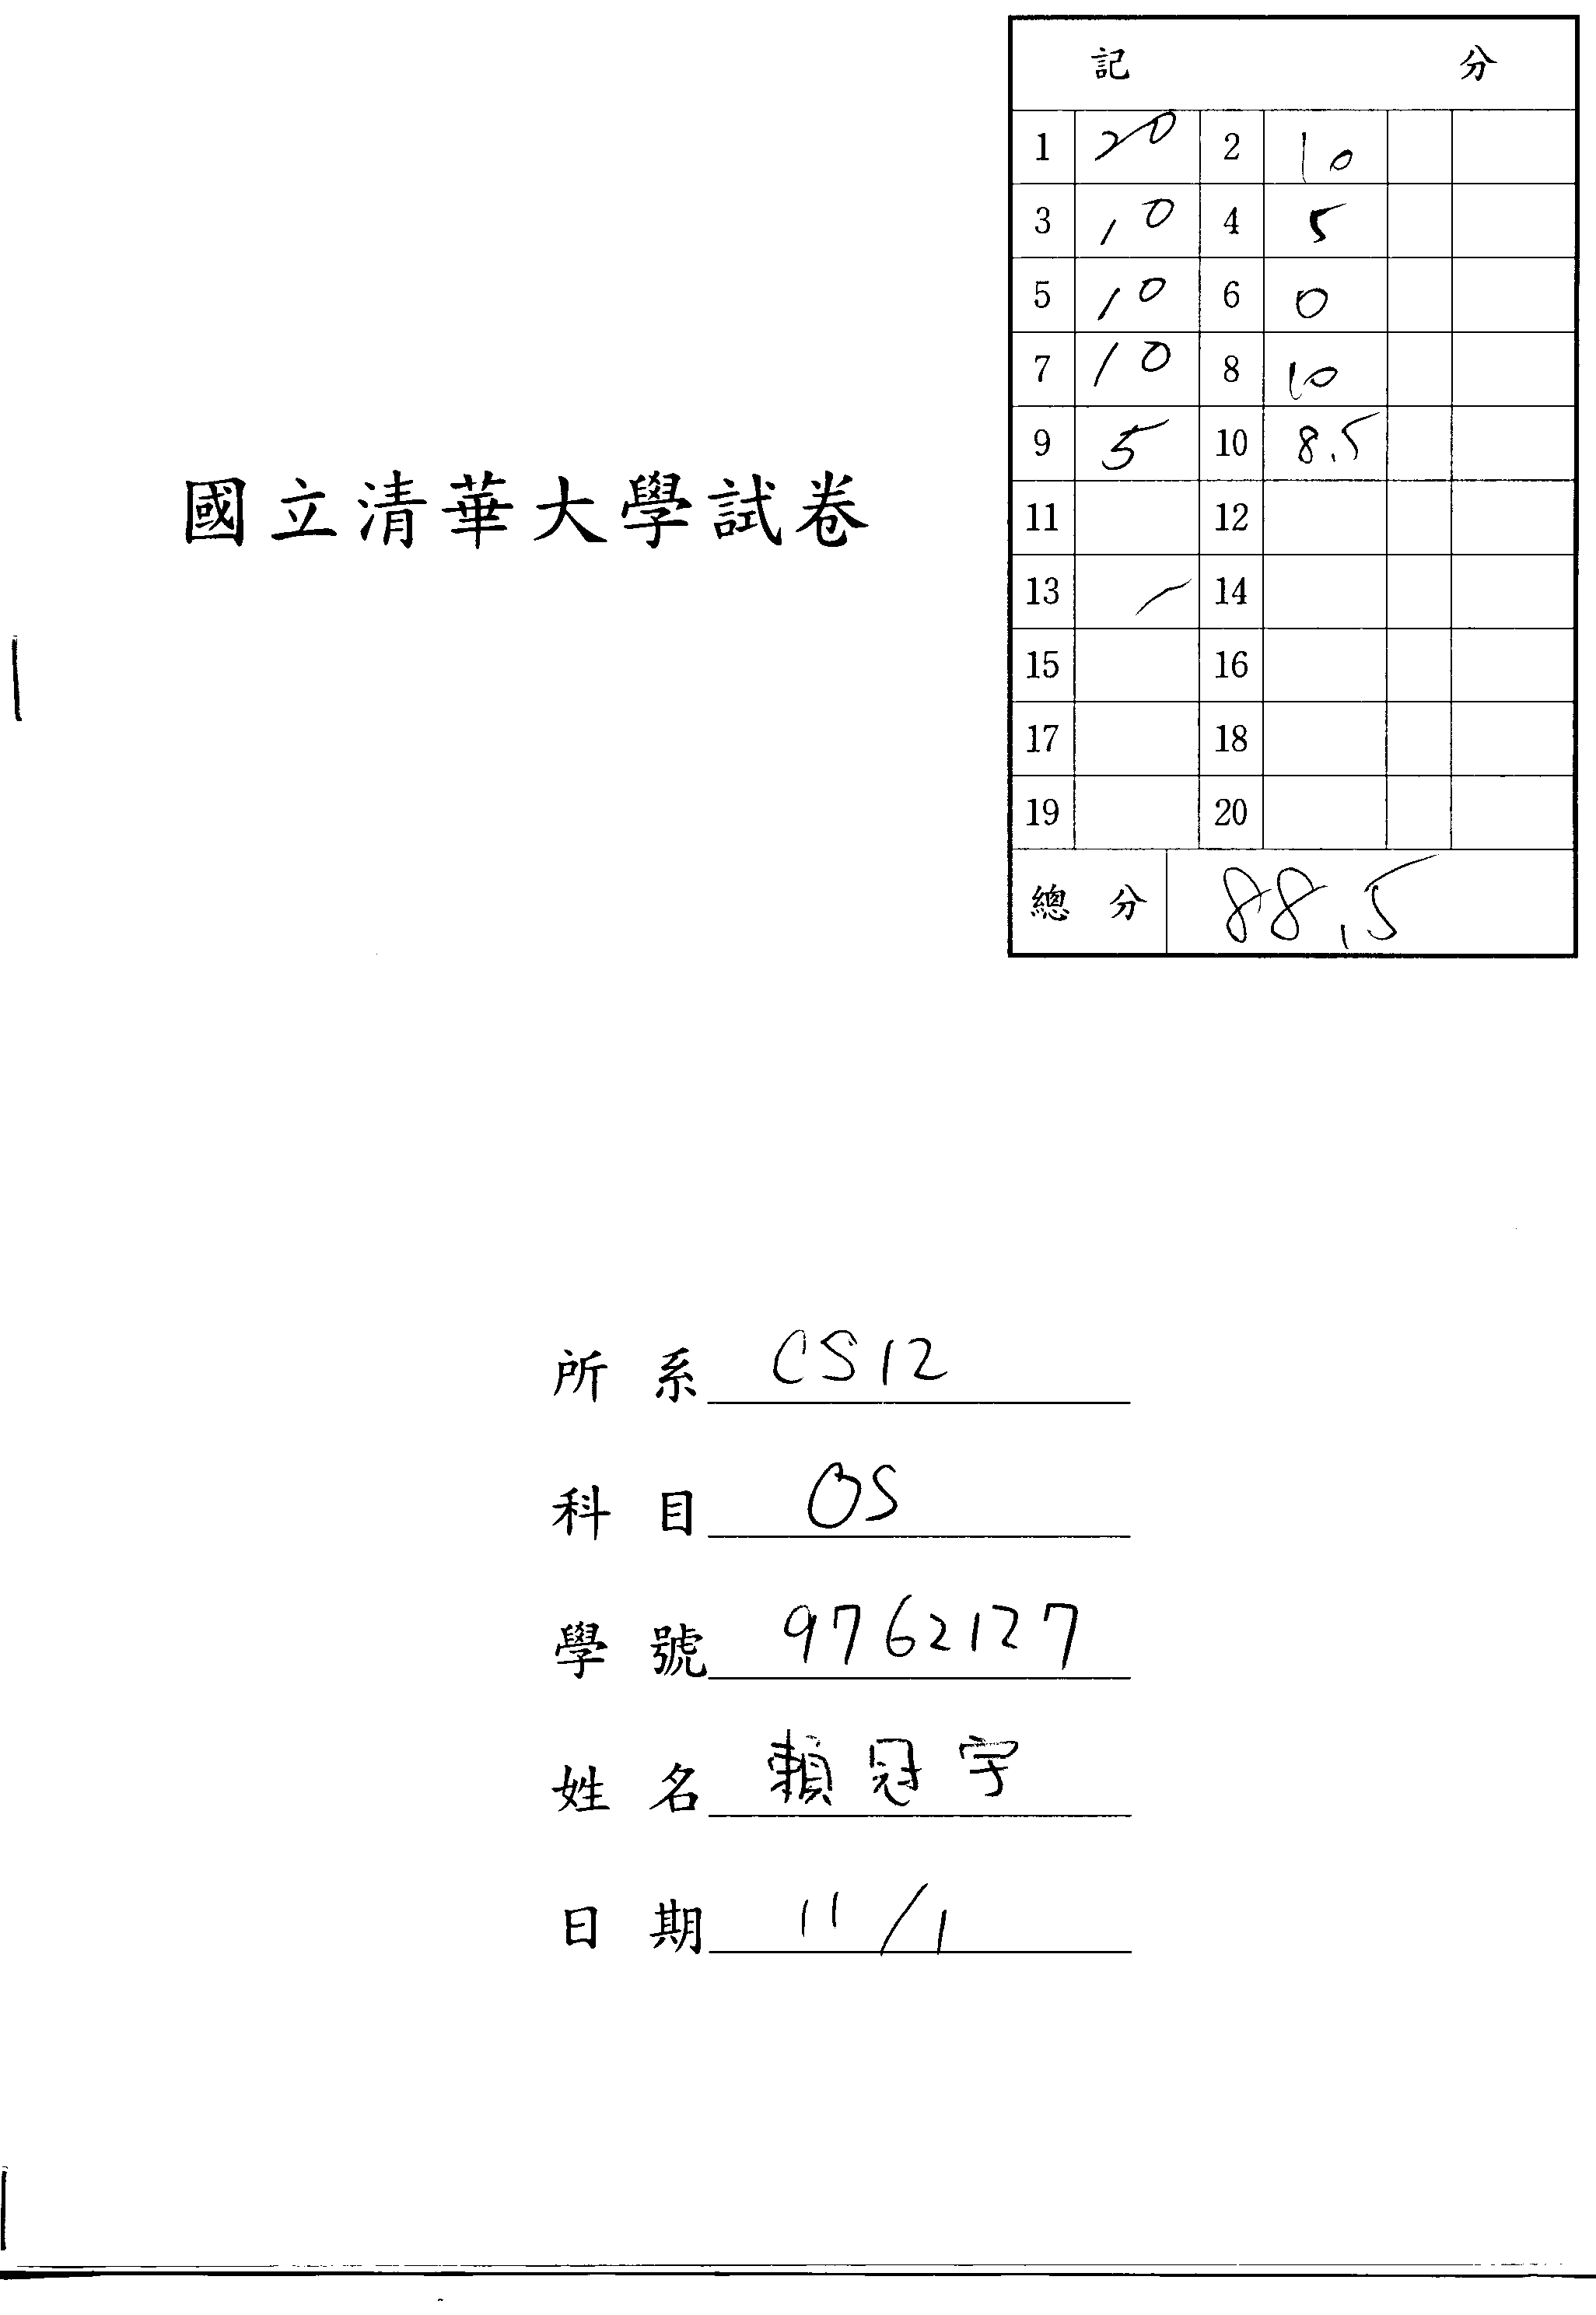 記 分
1 20 2 10
3 10 4 5
5 10 6 0
7 10 8 10
9 5 10 8.5
11 12
13 14
15 16
17 18
19 20
總 分 88.5
國立清華大學試卷
所 系 CS12
科 目 OS
學 號 9762127
姓 名 賴冠宇
日 期 11/1